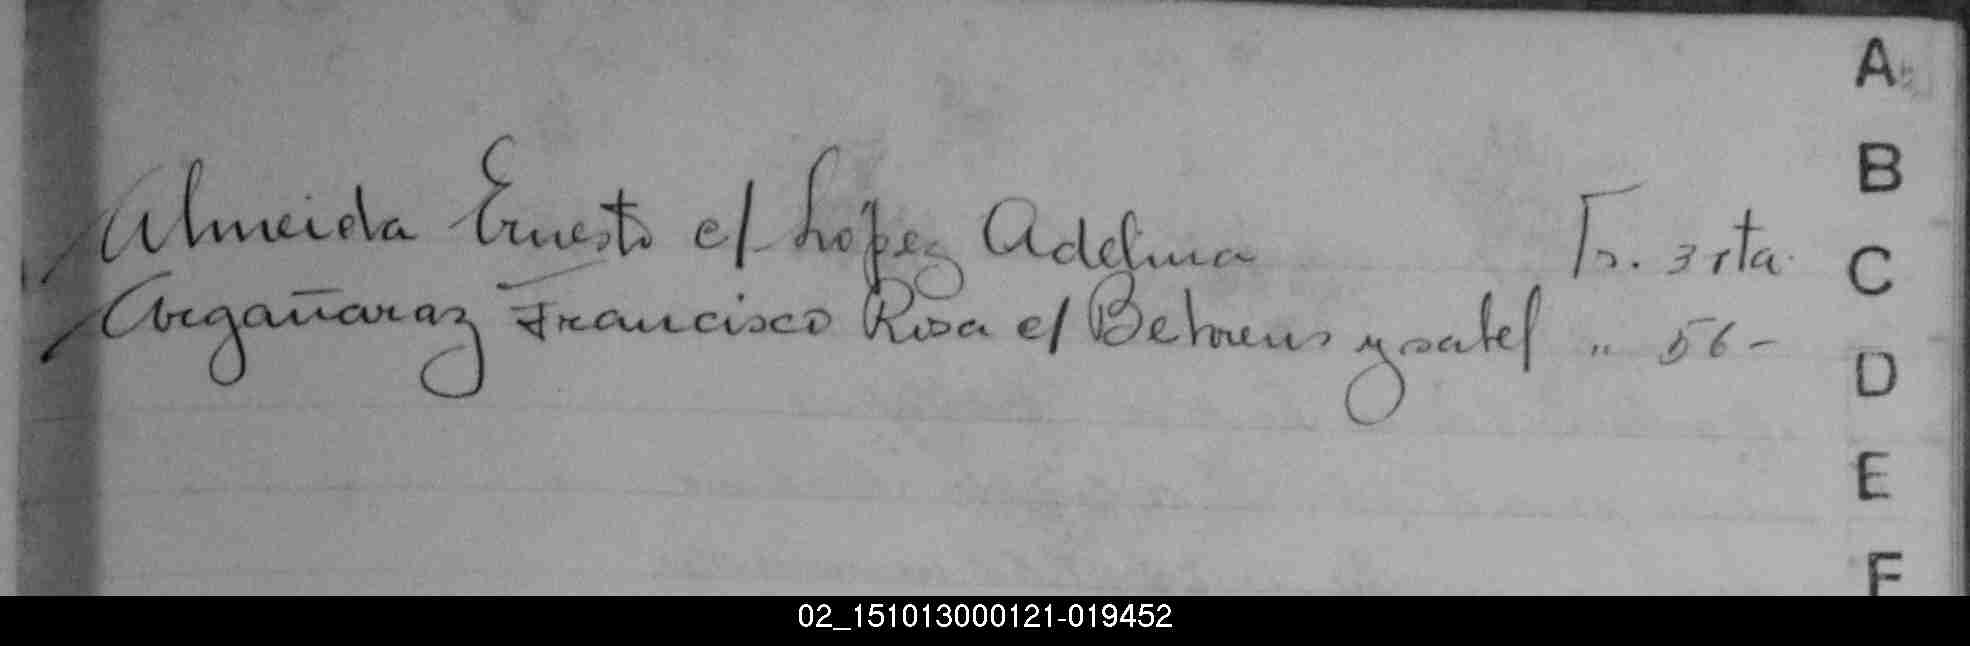 A
B
Almeida Ernesto c/ López Adelina
C
Argañaraz Francisco Rosa c/ ysabel " 56 -
D
E
F
02_151013000121-019452